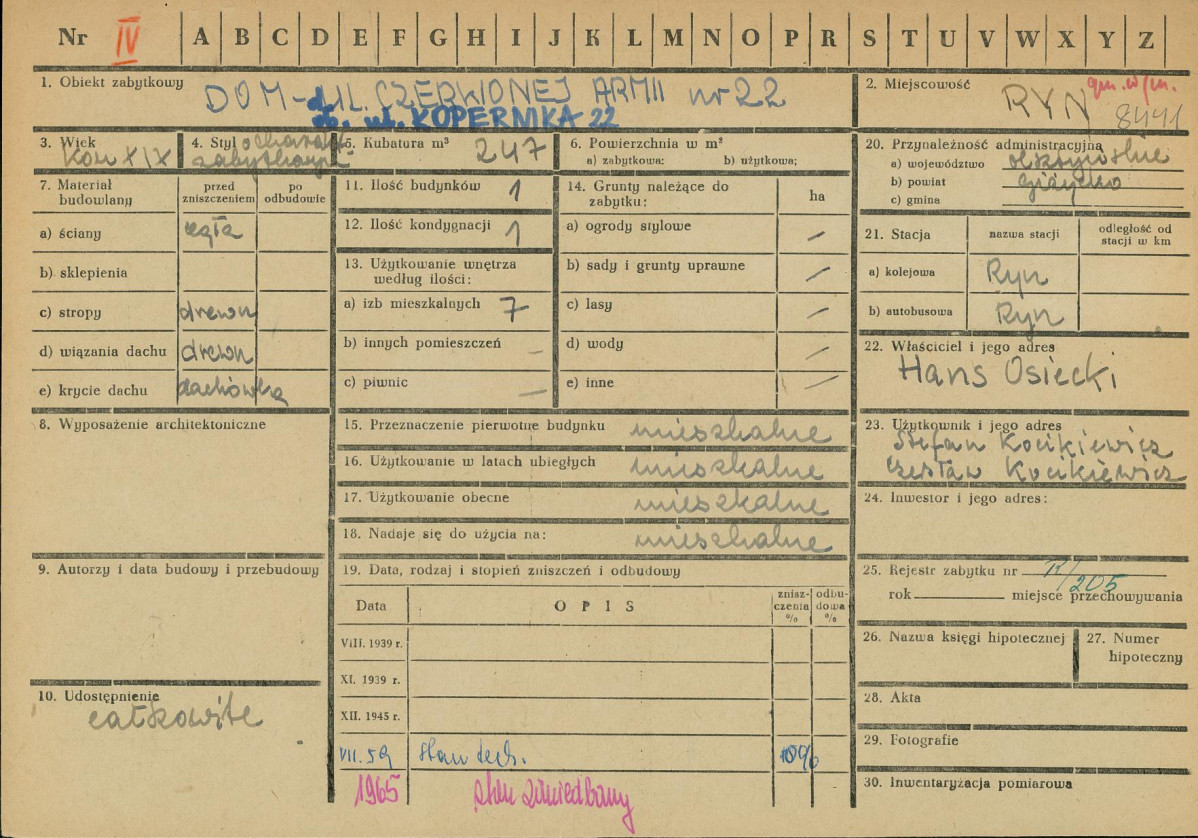 Nr IV A B C D E F G H I J K L M N O P R S T U V W X Y Z
1. Obiekt zabytkowy
DOM - UL. CZERWONEJ ARMII nr 22
ob. ul. KOPERNIKA 22
2. Miejscowość
RYN
8441
3. Wiek
kon XIX
4. Styl
o charakt.
zabytkowym
5. Kubatura m³ 247
6. Powierzchnia w m²
a) zabytkowa: b) użytkowa:
7. Materiał budowlany
przed zniszczeniem
po odbudowie
a) ściany cegła
b) sklepienia
c) stropy drewn
d) wiązania dachu drewn
e) krycie dachu dachówka
8. Wyposażenie architektoniczne
9. Autorzy i data budowy i przebudowy
10. Udostępnienie
całkowite
11. Ilość budynków 1
12. Ilość kondygnacji 1
13. Użytkowanie wnętrza
według ilości:
a) izb mieszkalnych 7
b) innych pomieszczeń –
c) piwnic –
14. Grunty należące do
zabytku:
ha
a) ogrody stylowe –
b) sady i grunty uprawne –
c) lasy –
d) wody –
e) inne –
15. Przeznaczenie pierwotne budynku mieszkalne
16. Użytkowanie w latach ubiegłych mieszkalne
17. Użytkowanie obecne mieszkalne
18. Nadaje się do użycia na: mieszkalne
19. Data, rodzaj i stopień zniszczeń i odbudowy
Data OPIS znisz-czenia % odbu-dowa %
VIII. 1939 r.
XI. 1939 r.
XII. 1945 r.
VII. 59 stan tech.
1965 stan zaniedbany
20. Przynależność administracyjna
a) województwo olsztyńskie
b) powiat Giżycko
c) gmina
21. Stacja
nazwa stacji
odległość od
stacji w km
a) kolejowa Ryn
b) autobusowa Ryn
22. Właściciel i jego adres
Hans Osiecki
23. Użytkownik i jego adres
Stefan Kocikiewicz
Czesław Kocikiewicz
24. Inwestor i jego adres:
25. Rejestr zabytku nr R/205
rok miejsce przechowywania
26. Nazwa księgi hipotecznej
27. Numer
hipoteczny
28. Akta
29. Fotografie
30. Inwentaryzacja pomiarowa